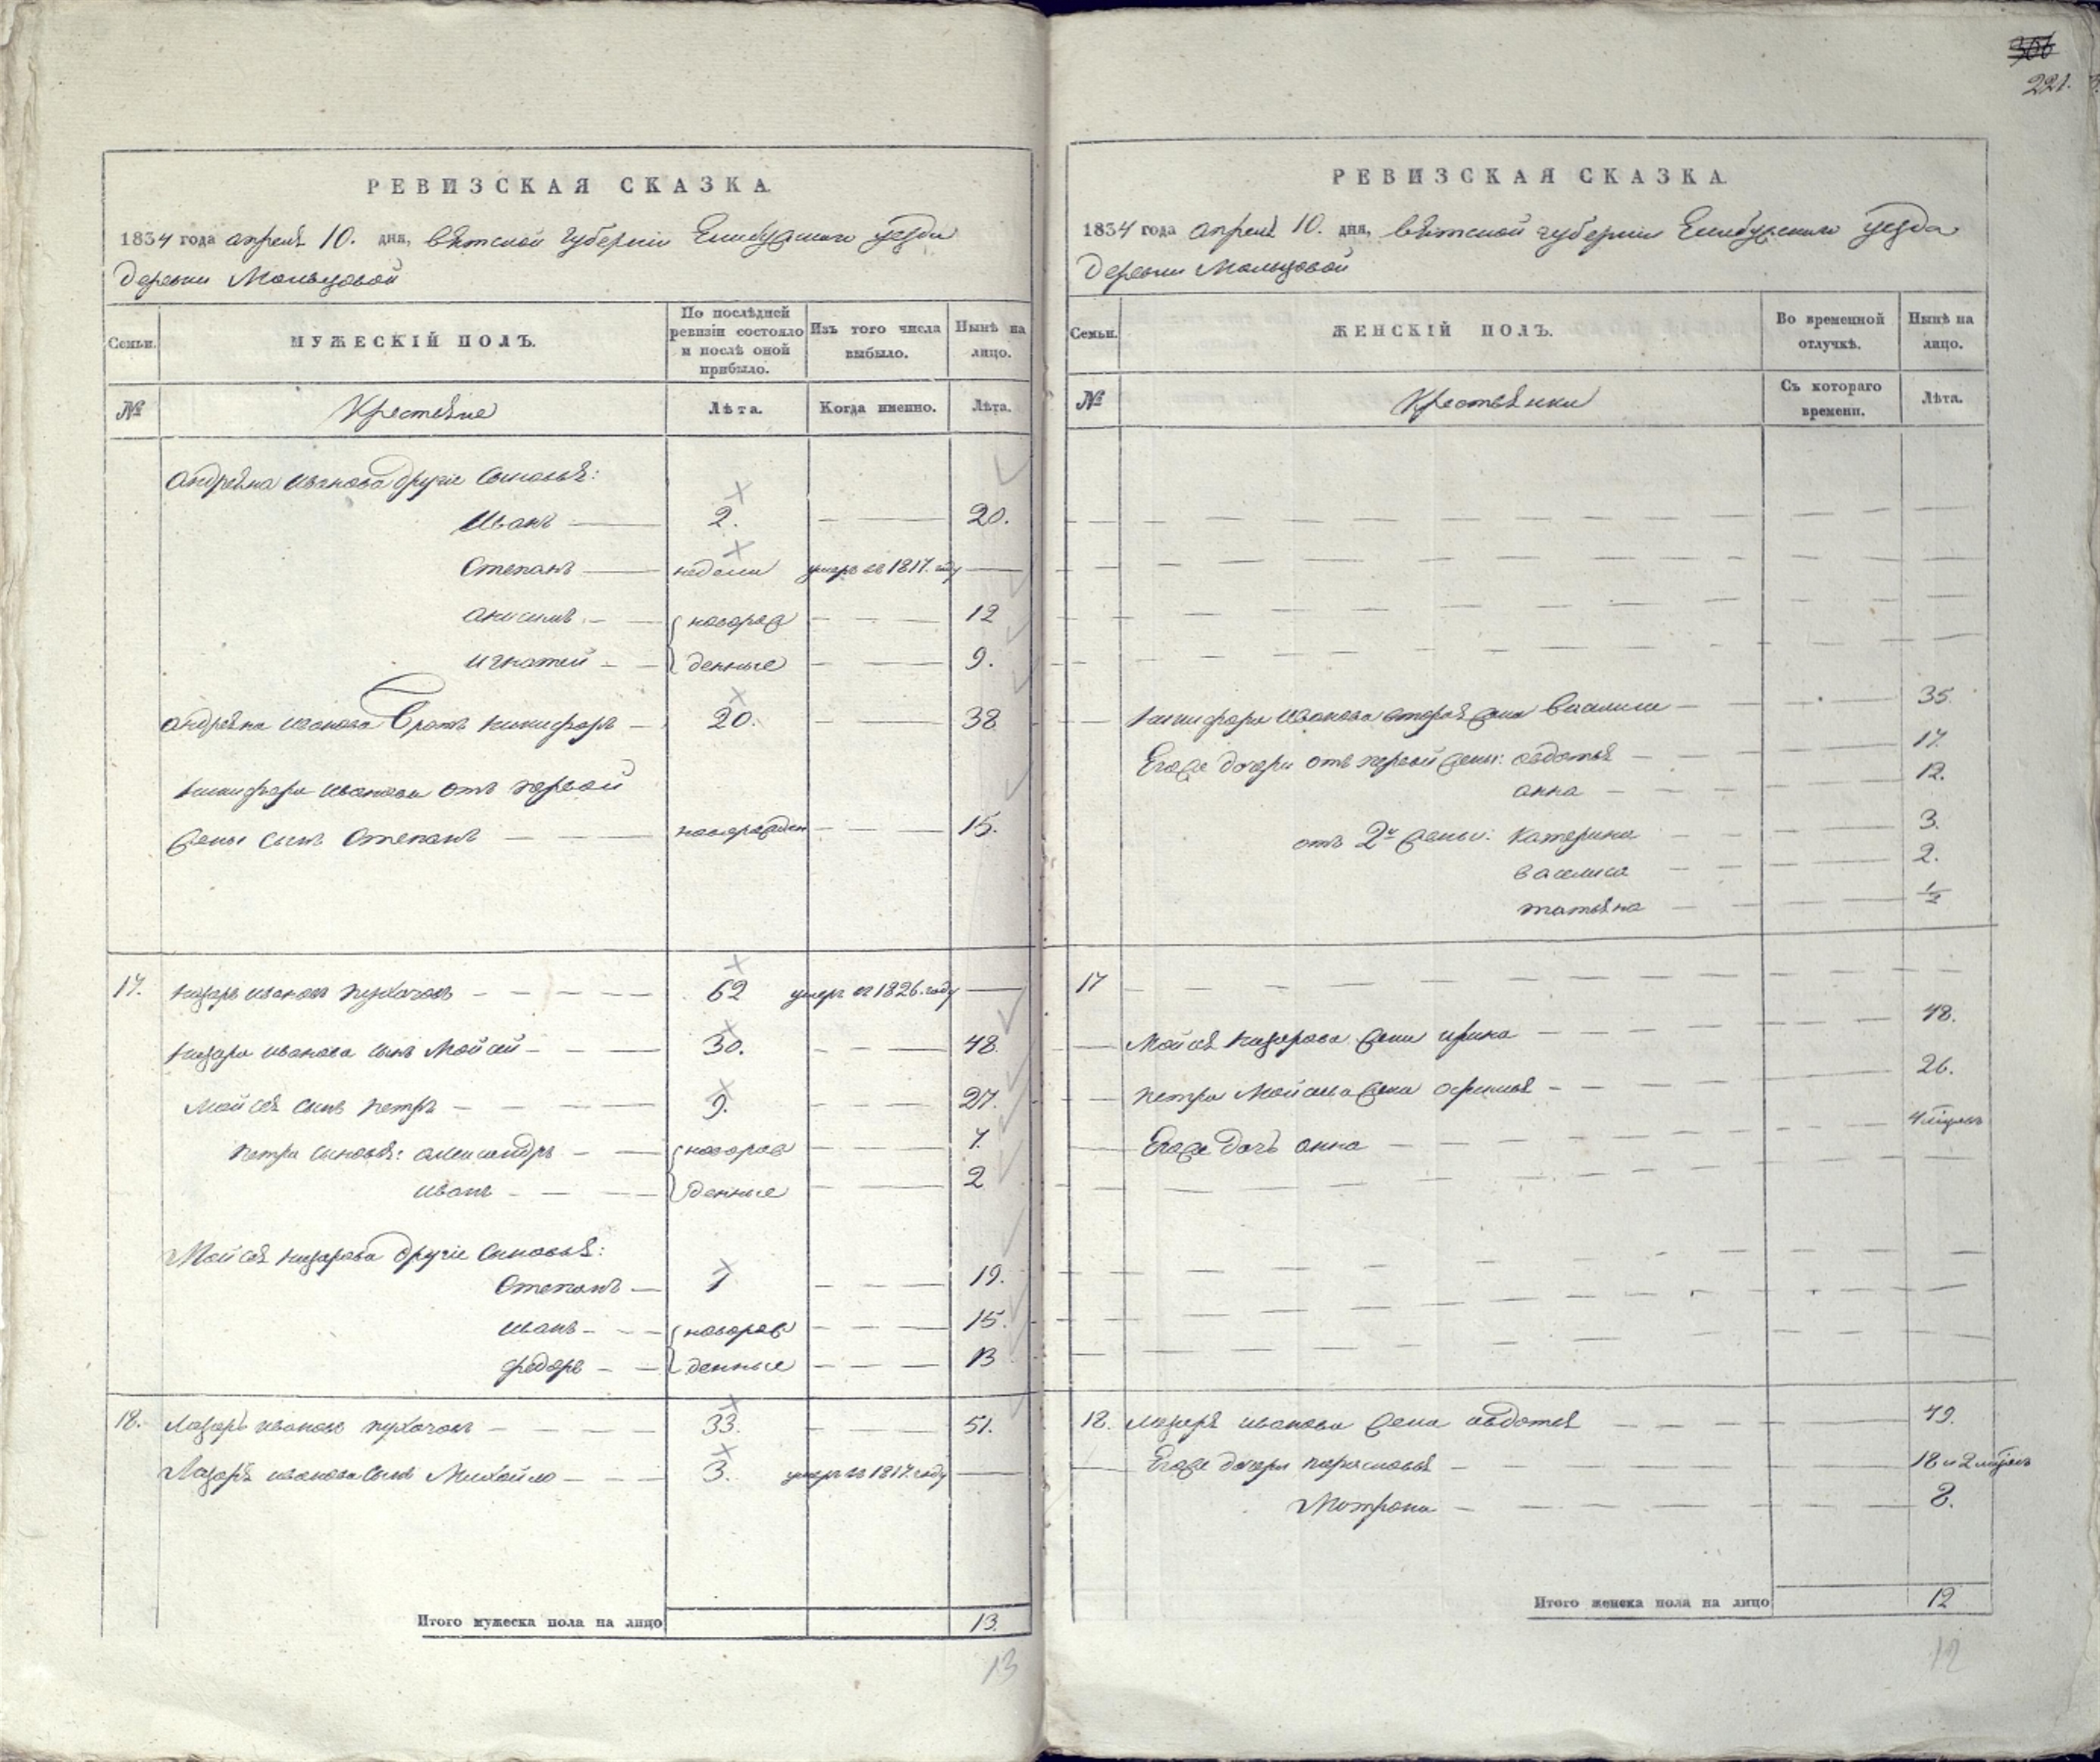 366
221.
РЕВИЗСКАЯ СКАЗКА
1834 года апреля 10. дня, вятской губернии Елабужского уезда
деревни Мальцовой
Семьи.
МУЖЕСКІЙ ПОЛЪ.
По послѣдней ревизіи состояло и послѣ оной прибыло.
Изъ того числа выбыло.
Нынѣ на лицо.
№
Крестьяне
Лѣта.
Когда именно.
Лѣта.
Андреяна Иванова другие сыновья:
Иванъ 2. 20.
Степанъ недели умеръ въ 1817. году
Анисимъ новорож 12
Игнатей денные 9.
Андреяна Иванова братъ Никифоръ 20. 38
Никифора Иванова отъ первой
жены сынъ Степанъ новорожден 15.
17. Назаръ Ивановъ 62 умеръ въ 1826. году
Назара Иванова сынъ Мойсей 30. 48
Мойсея сынъ Петръ 9. 27.
Петра сыновья: Александръ новорож 7.
Иванъ денные 2
Мойсея Назарова другие сыновья:
Степанъ 1 19.
Иванъ новорож 15.
Федоръ денные 13
18. Лазарь Ивановъ 33. 51.
Лазаря Иванова сынъ Михайло 3. умеръ въ 1817. году
Итого мужеска пола на лицо 13.
13
РЕВИЗСКАЯ СКАЗКА
1834 года апреля 10. дня, вятской губернии Елабужского уезда
деревни Мальцовой
Семьи.
ЖЕНСКІЙ ПОЛЪ.
Во временной отлучкѣ.
Нынѣ на лицо.
№
Крестьянки
Съ котораго времени.
Лѣта.
Никифора Иванова вторая жена Василиса 35.
Егоже дочери отъ первой жены: Авдотья 17.
Анна 12.
отъ 2й жены: Катерина 3.
Василиса 2.
Татьяна 1/2
17
Мойсея Назарова жена Ирина 48.
Петра Мойсеева жена Офимья 26.
Егоже дочь Анна
18. Лазаря Иванова жена Авдотья 49.
Егоже дочери Парасковья
Матрона 8.
Итого женска пола на лицо 12
12